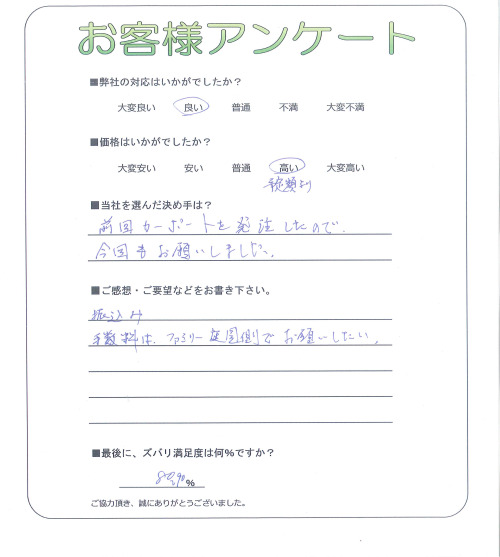 お客様アンケート
■弊社の対応はいかがでしたか？
大変良い 良い 普通 不満 大変不満
■価格はいかがでしたか？
大変安い 安い 普通 高い 大変高い
■当社を選んだ決め手は？
前回カーポートを発注したので、
今回もお願いしました。
■ご感想・ご要望などをお書き下さい。
振込み
手数料は、ファミリー庭園側でお願いしたい。
■最後に、ズバリ満足度は何％ですか？
％
ご協力頂き、誠にありがとうございました。